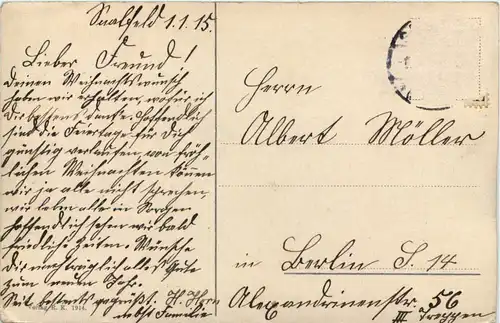 Saalfeld 1.1.15.
Lieber Freund!
Deinen Weihnachtswunsch
haben wir erhalten, wofür ich
Dir bestens danke. Hoffentlich
sind die Feiertage für Dich
günstig verlaufen, von fröh-
lichen Weihnachten können
wir ja alle nicht sprechen,
wir leben alle in Sorgen
hoffentlich sehen wir bald
friedliche Zeiten. Wünsche
Dir nachträglich alles Gute
zum neuen Jahr.
Sei bestens gegrüßt. H. Horn
nebst Familie
Verlag R. K. 1914.
Herrn
Albert Möller
in Berlin S. 14
Alexandrinenstr. 56
III Treppen